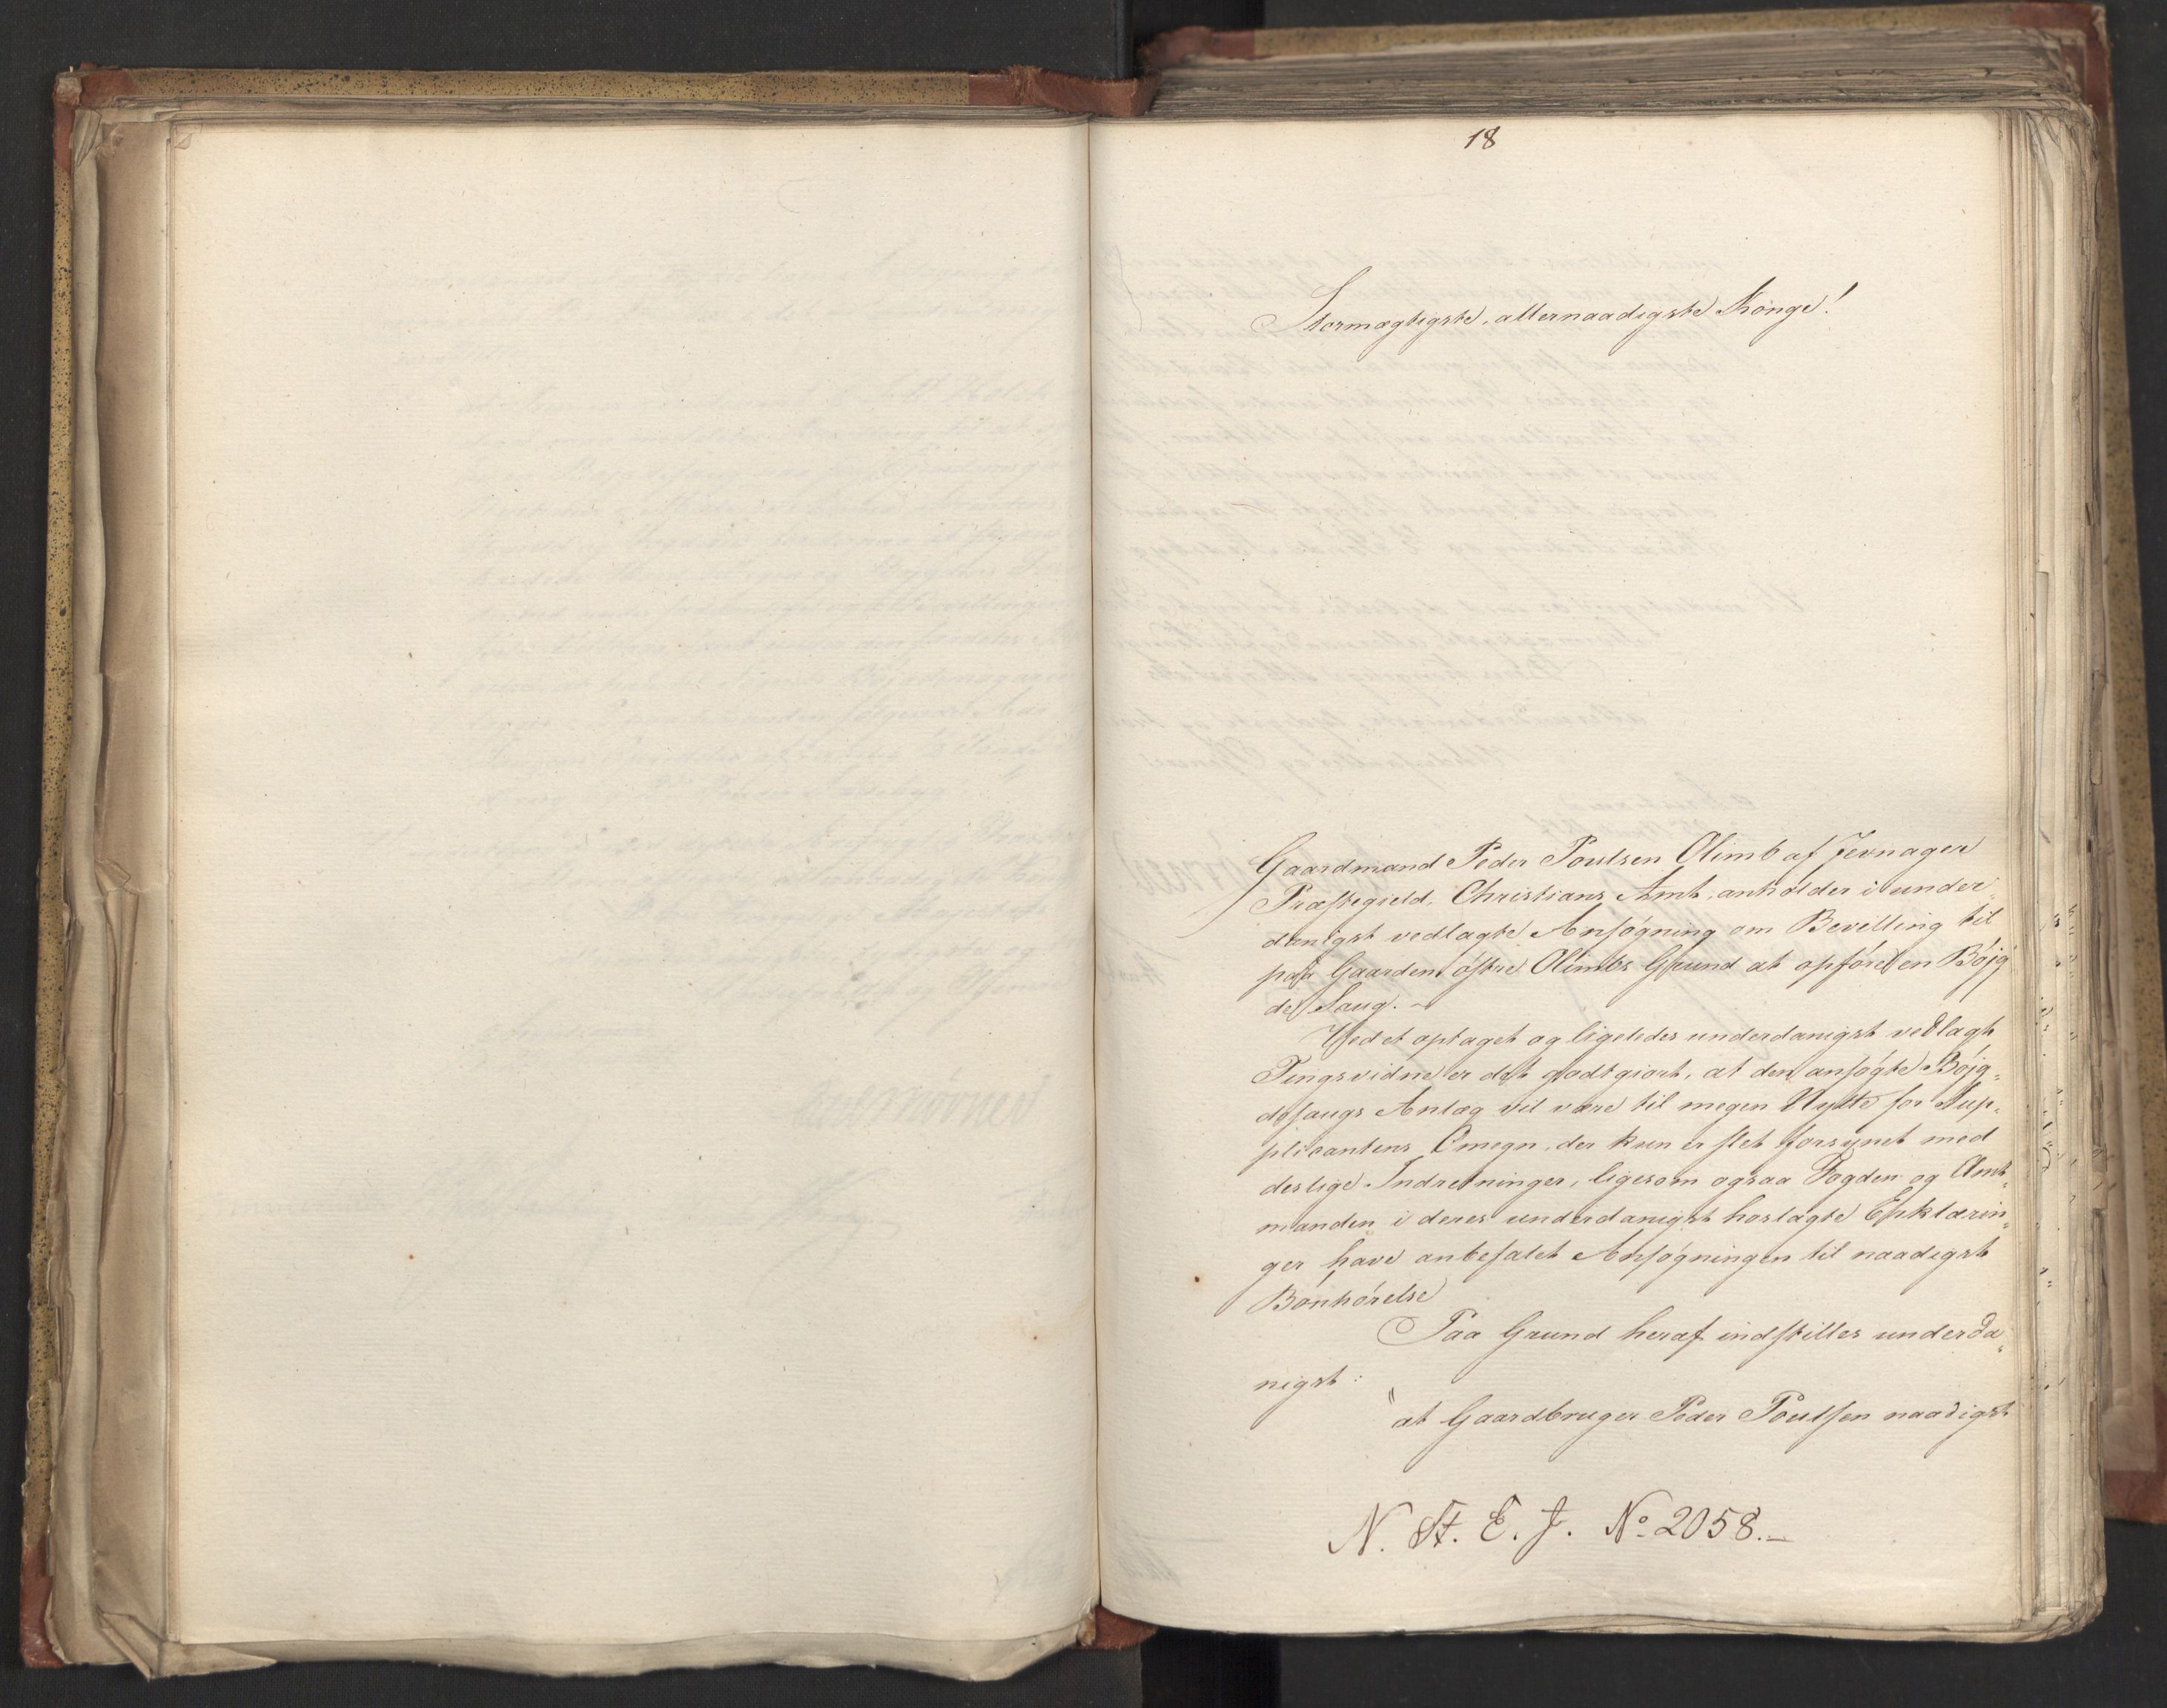 18
Stormægtigste, allernaadigste Konge!
Gaardmand Peder Poulsen Olimb af Jevnager
Præstegield, Christians Amt, anholder i under-
danigst vedlagte Ansøgning om Bevilling til
paa Gaarden østre Olimbs Grund at opføre en Bøjg
de Saug. -
Ved et optaget og ligeledes underdanigst vedlagt
Tingsvidne er det godtgiort, at den ansøgte Bøjg-
desaugs Anlæg vil være til megen Nytte for Sup-
plicantens Omegn, der kun er slet forsynet med
deslige Indretninger, ligesom ogsaa Fogden og Amt-
manden i deres underdanigst hoslagte Erklærin-
ger have anbefalet Ansøgningen til naadigst
Bønhørelse
Paa Grund heraf indstilles underda-
nigst:
"at Gaardbruger Peder Poulsen naadigst
N. St. E. J. No. 2058.-